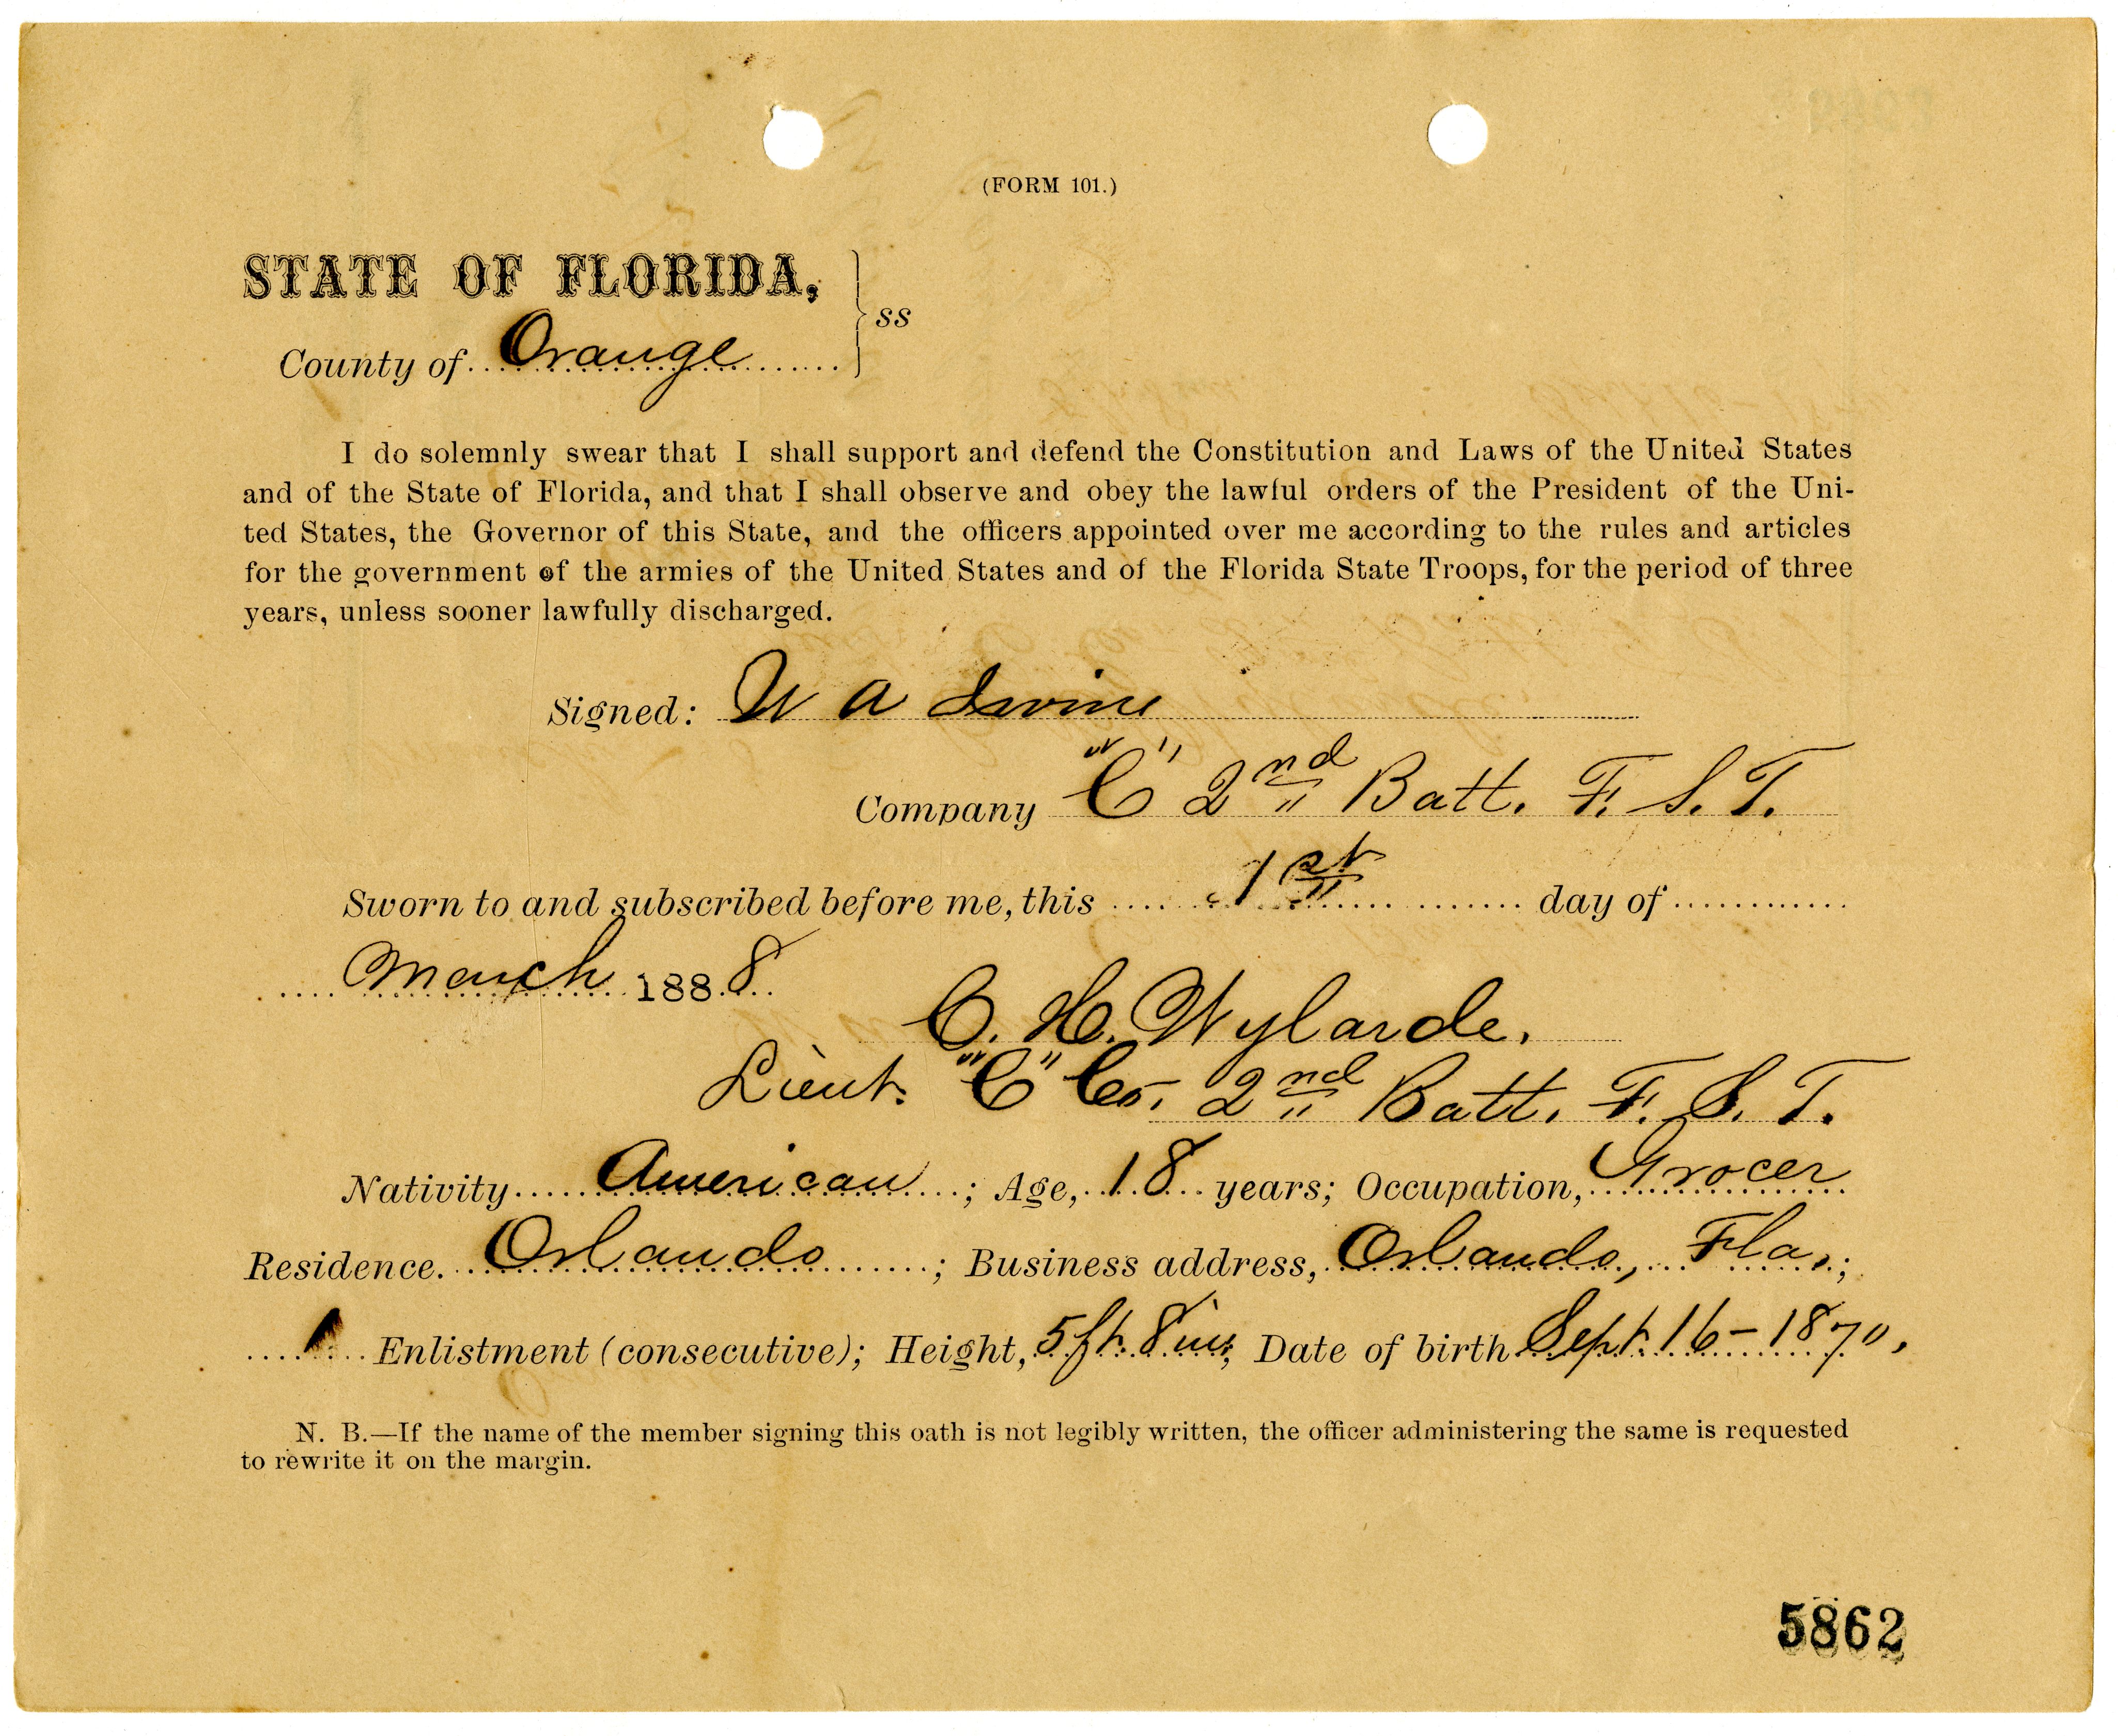 (FORM 101.)
STATE OF FLORIDA,
ss
County of Orange
I do solemnly swear that I shall support and defend the Constitution and Laws of the United States
and of the State of Florida, and that I shall observe and obey the lawful orders of the President of the Uni-
ted States, the Governor of this State, and the officers appointed over me according to the rules and articles
for the government of the armies of the United States and of the Florida State Troops, for the period of three
years, unless sooner lawfully discharged.
Signed: W A Irvine
Company "C" 2nd Batt. F. S. T.
Sworn to and subscribed before me, this 1st day of
March 1888
C. H. Wylarde.
Lieut. "C" Co. 2nd Batt. F. S. T.
Nativity American; Age, 18 years; Occupation, Grocer
Residence. Orlando; Business address, Orlando, Fla.;
1 Enlistment (consecutive); Height, 5 ft. 8 ins, Date of birth Sept. 16 - 1870.
N. B.—If the name of the member signing this oath is not legibly written, the officer administering the same is requested
to rewrite it on the margin.
5862